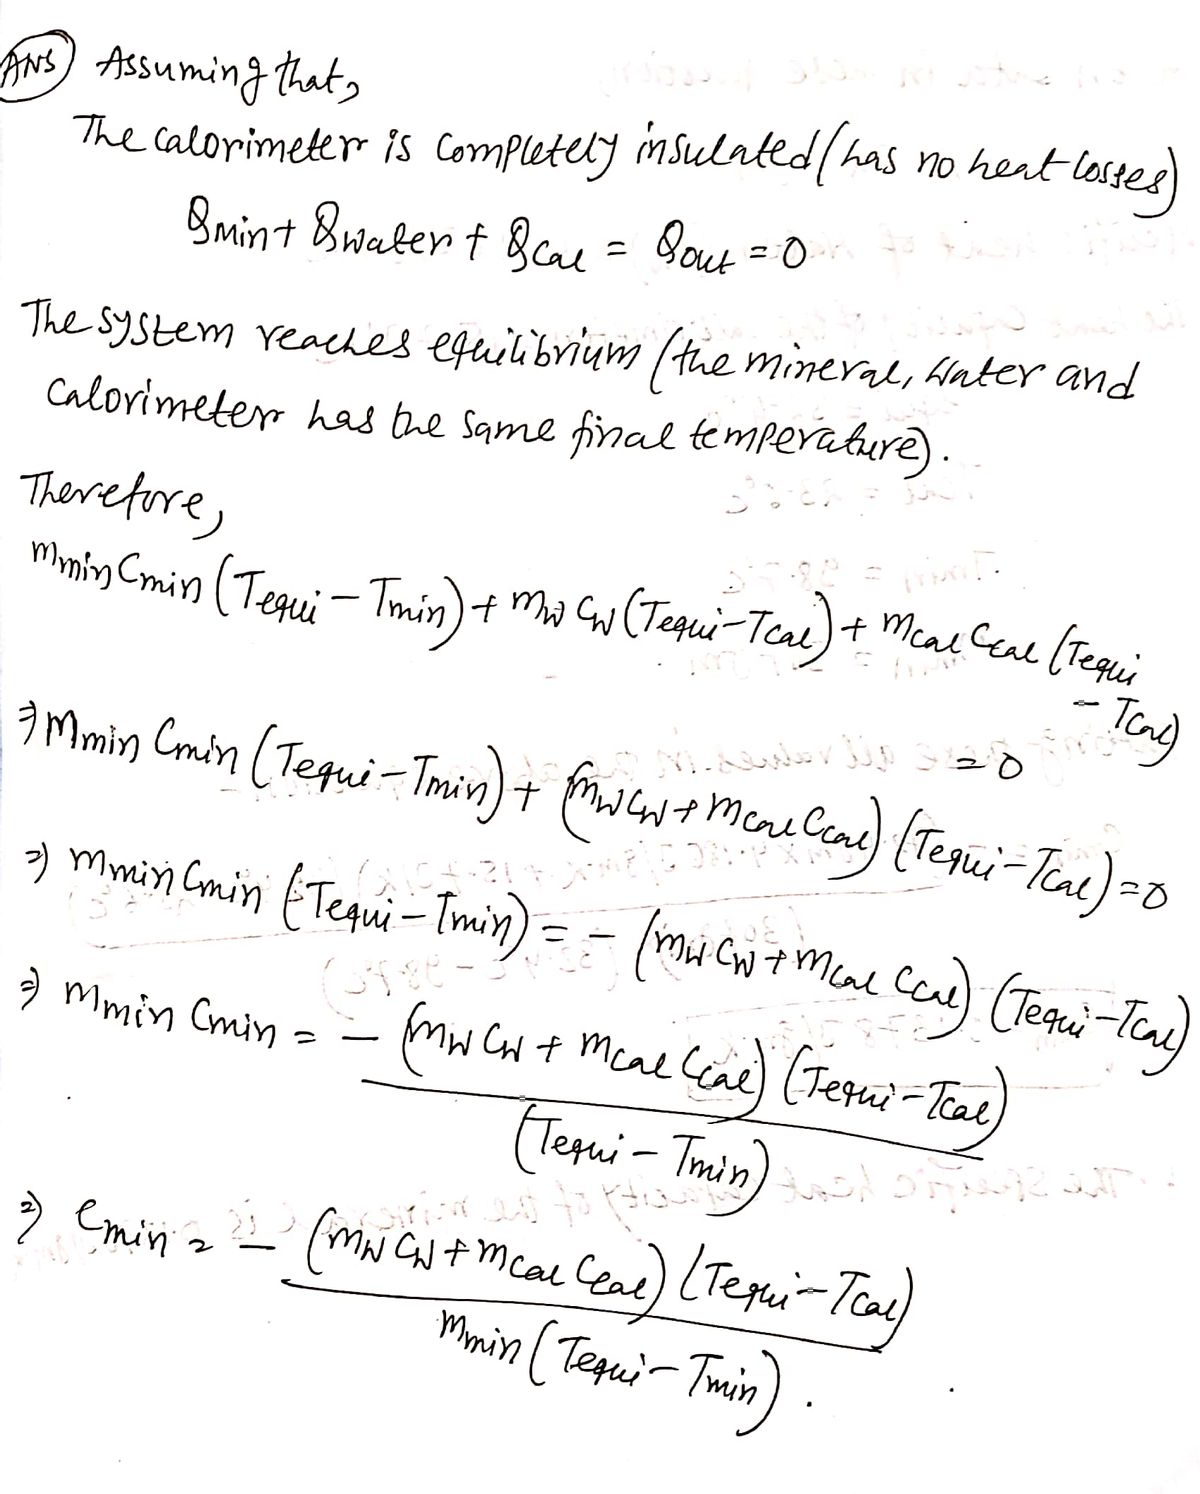 ANS) Assuming that,
The calorimeter is completely insulated (has no heat losses)
Qmin + Qwater + Qcal = Qout = 0
The system reaches equilibrium (the mineral, water and
calorimeter has the same final temperature).
Therefore,
mmin Cmin (Tequi - Tmin) + mw Cw (Tequi - Tcal) + mcal Ccal (Tequi
- Tcal)
= 0
⇒ mmin Cmin (Tequi - Tmin) + (mw Cw + mcal Ccal) (Tequi - Tcal) = 0
⇒ mmin Cmin (Tequi - Tmin) = - (mw Cw + mcal Ccal) (Tequi - Tcal)
⇒ mmin Cmin = - (mw Cw + mcal Ccal) (Tequi - Tcal)
(Tequi - Tmin)
⇒ Cmin = - (mw Cw + mcal Ccal) (Tequi - Tcal)
mmin (Tequi - Tmin).